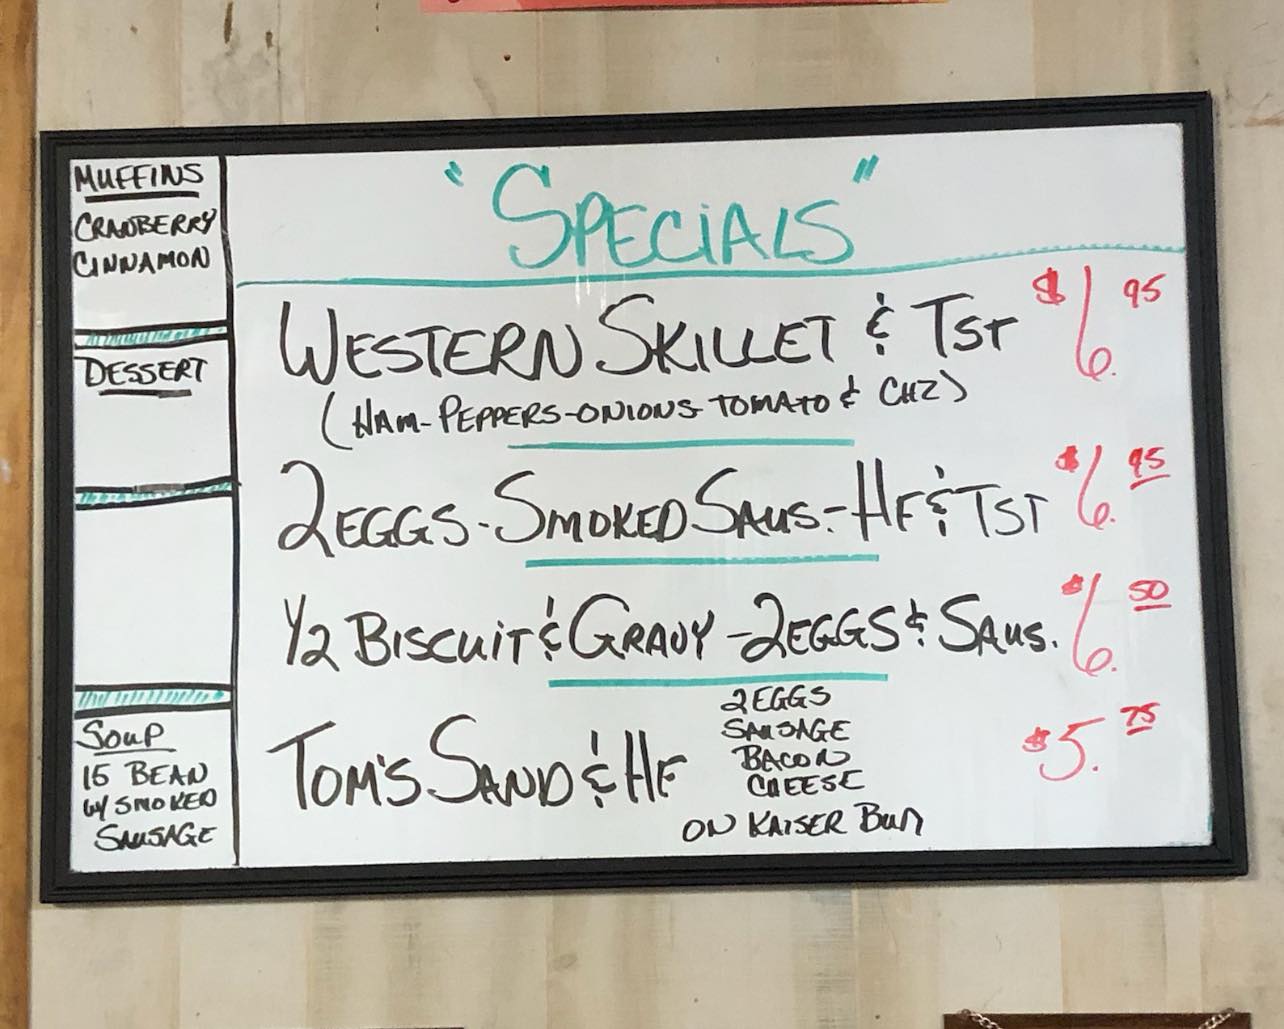 MUFFINS
CRANBERRY
CINNAMON
DESSERT
SOUP
15 BEAN
W/ SMOKED
SAUSAGE
"SPECiALS"
WESTERN SKILLET & TST $6.95
(HAM-PEPPERS-ONIONS-TOMATO & CHZ)
2EGGS-SMOKED SAUS.-HF & TST $6.95
1/2 BISCUIT & GRAVY -2EGGS & SAUS. $6.50
TOM'S SAND & HF $5.75
2 EGGS
SAUSAGE
BACON
CHEESE
ON KAISER BUN